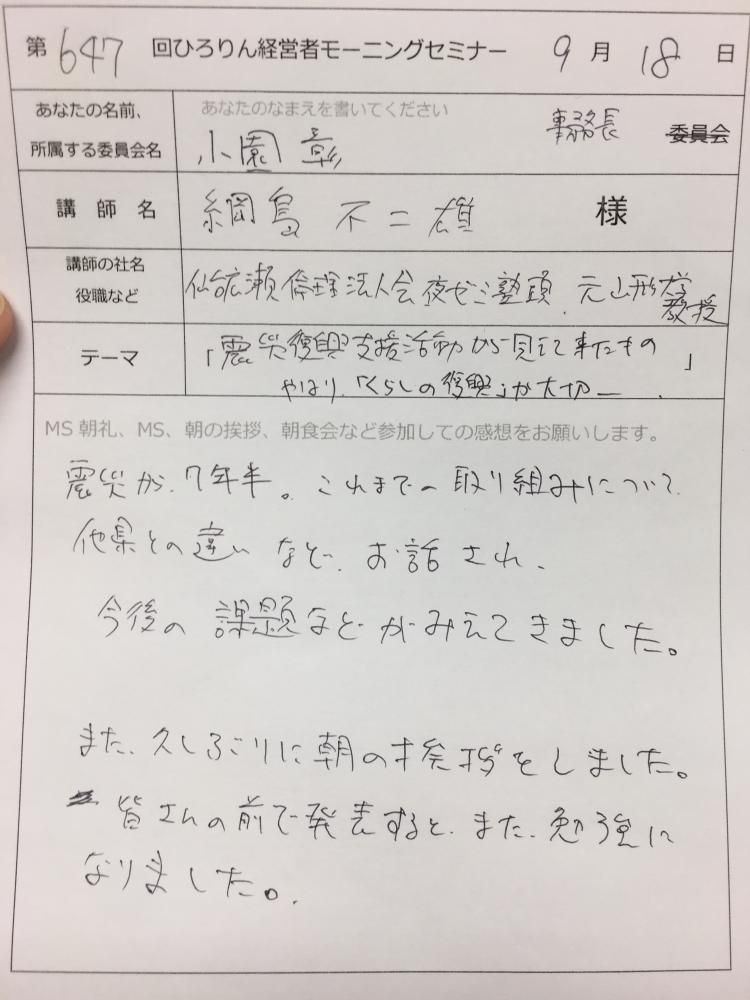 第647回ひろりん経営者モーニングセミナー 9月18日
あなたの名前、
所属する委員会名
あなたのなまえを書いてください
小園 彰 事務長 委員会
講師名 綱島 不二雄 様
講師の社名
役職など
仙台広瀬倫理法人会夜ゼミ塾頭.元山形大学
教授
テーマ
「震災復興支援活動から見えて来たもの」
やはり、「くらしの復興」が大切ー.
MS朝礼、MS、朝の挨拶、朝食会など参加しての感想をお願いします。
震災が、7年半。これまでの取り組みについて
他県との違いなど、お話され、
今後の課題などがみえてきました。
また、久しぶりに朝の挨拶をしました。
皆さんの前で発表すると、また、勉強に
なりました。